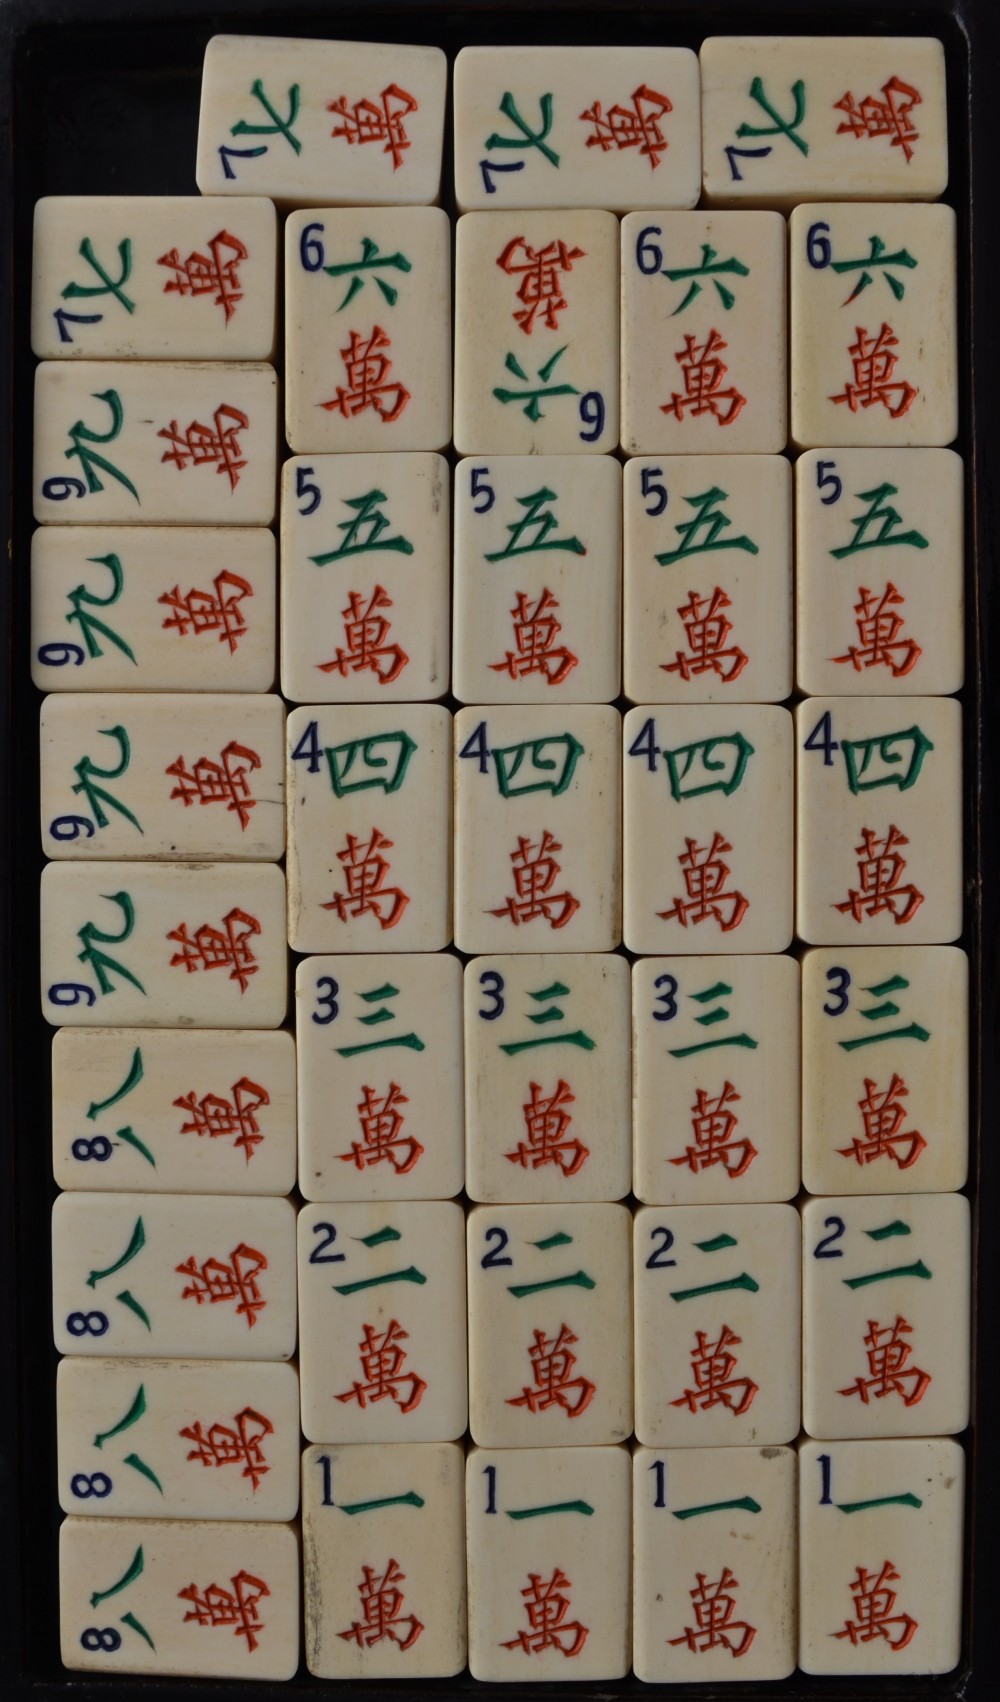 7 七 萬
7 七 萬
7 七 萬
7 七 萬
6 六 萬
6 六 萬
6 六 萬
6 六 萬
9 九 萬
5 五 萬
5 五 萬
5 五 萬
5 五 萬
9 九 萬
9 九 萬
4 四 萬
4 四 萬
4 四 萬
4 四 萬
9 九 萬
3 三 萬
3 三 萬
3 三 萬
3 三 萬
8 八 萬
8 八 萬
2 二 萬
2 二 萬
2 二 萬
2 二 萬
8 八 萬
1 一 萬
1 一 萬
1 一 萬
1 一 萬
8 八 萬